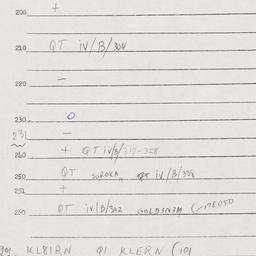 200 +
210 QT iv/B/304
220 —
230 O
231 —
240 + QT iv/B/317-328
250 QT SOROKA QT iv/B/338
251 +
260 QT iv/B/342 GOLDSNAM
KL81RN 91 KLERN (101